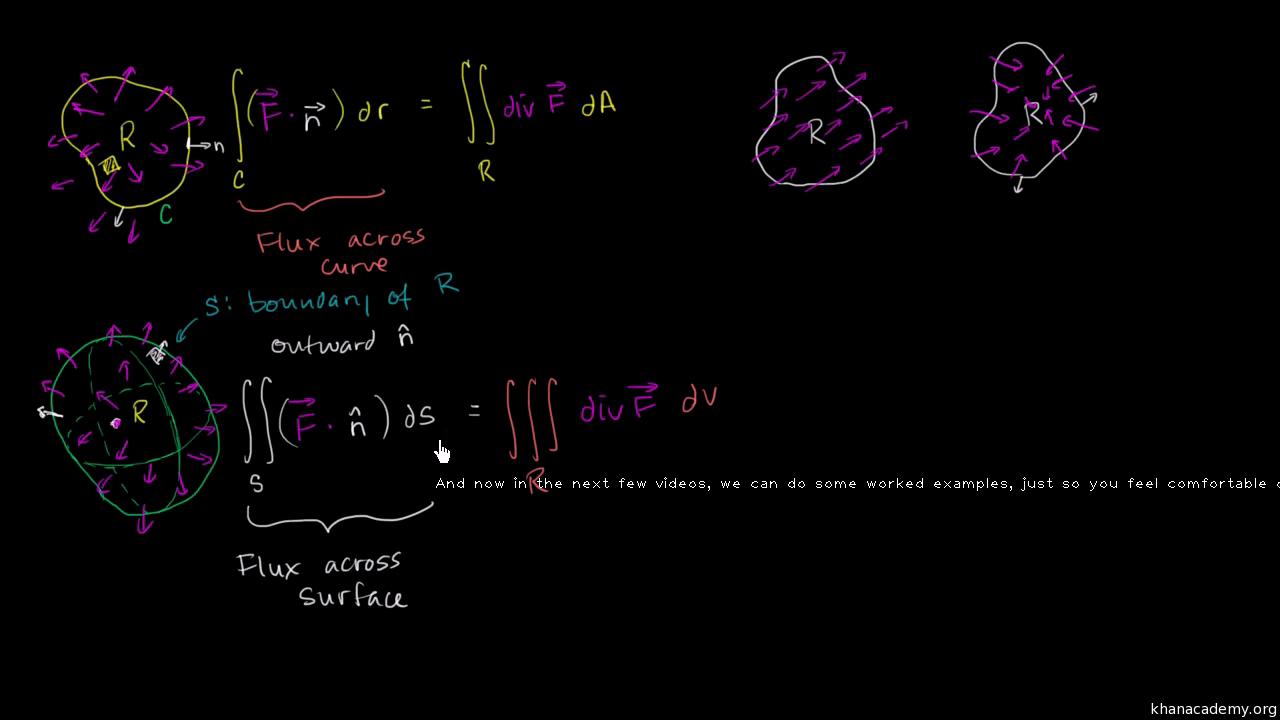 R
n
C
∫_C (F⃗ · n⃗) dr = ∬_R div F⃗ dA
Flux across
curve
R
R
S: boundary of R
outward n̂
R
∬_S (F⃗ · n̂) dS = ∭_R div F⃗ dV
And now in the next few videos, we can do some worked examples, just so you feel comfortable
Flux across
surface
khanacademy.org